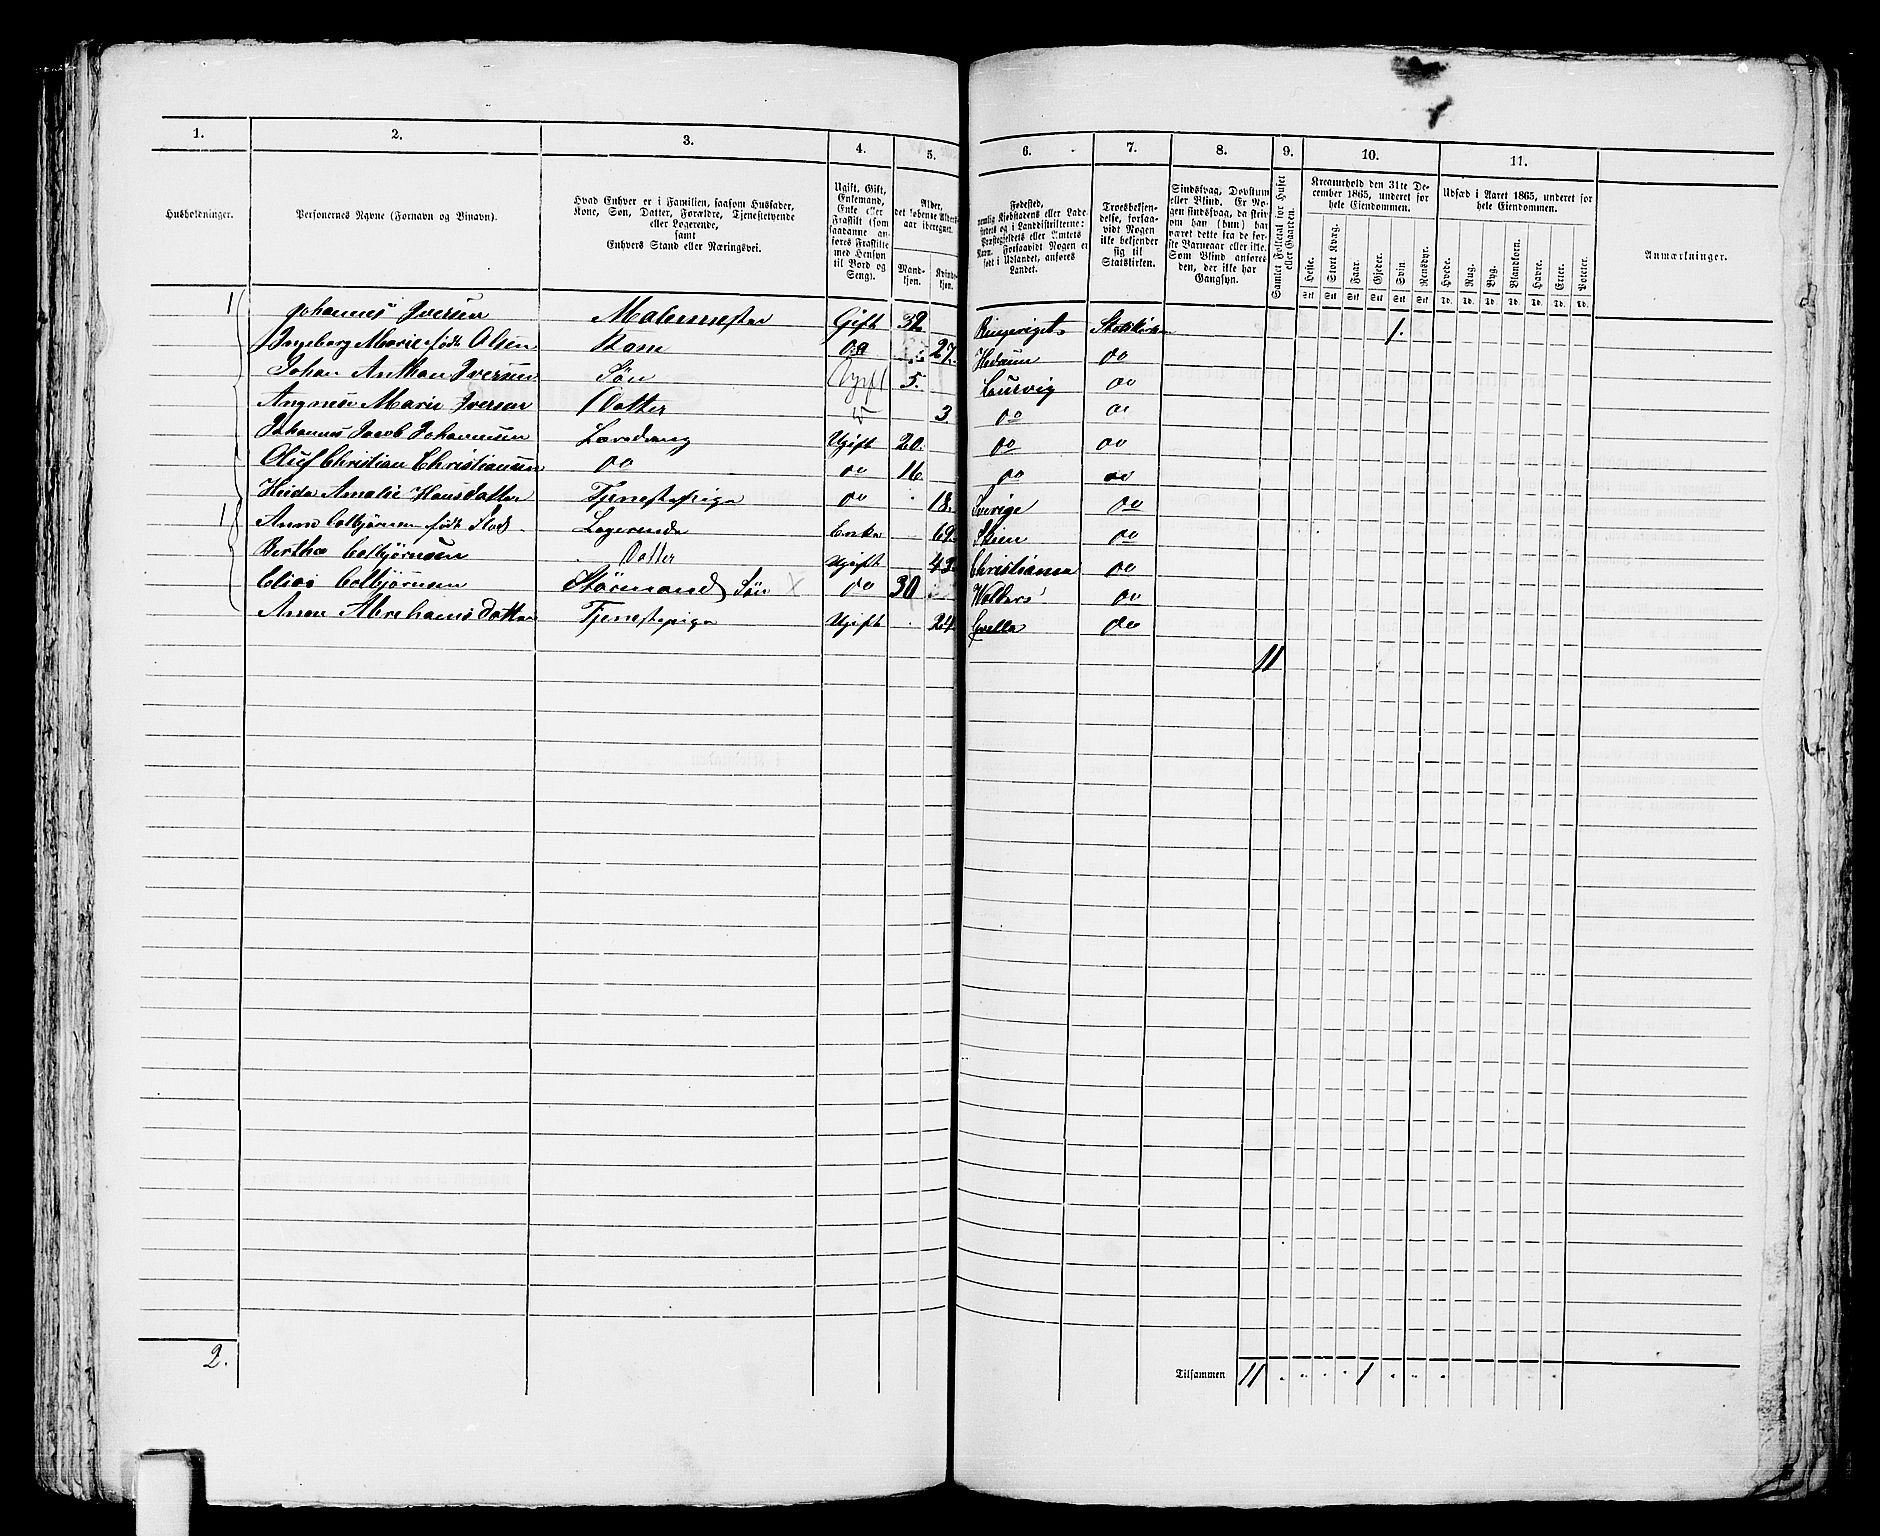 1. 2. 3. 4. 5. 6. 7. 8. 9. 10. 11.
Husholdninger.
Personernes Navne (Fornavn og Binavn).
Hvad Enhver er i Familien, saasom Husfader,
Kone, Søn, Datter, Forældre, Tjenestetyende
eller Logerende,
samt
Enhvers Stand eller Næringsvei.
Ugift, Gift,
Enkemand,
Enke eller
Fraskilt (som
saadanne an-
føres Fraskilte
med Hensyn
til Bord og
Seng).
Alder,
det løbende Alders-
aar iberegnet.
Mand-
kjøn.
Kvind-
kjøn.
Fødested,
nemlig Kjøbstadens eller Lade-
stedets og i Landdistrikterne:
Præstegjeldets eller Amtets
Navn. Forsaavidt Nogen er
født i Udlandet, anføres
Landet.
Troesbekjen-
delse, forsaa-
vidt Nogen
ikke bekjender
sig til
Statskirken.
Sindssvag, Døvstum
eller Blind. Er No-
gen sindssvag, da skri-
ves, om han (hun) har
været dette fra de før-
ste Barneaar eller ikke.
Som Blind anføres
den, der ikke har
Gangsyn.
Samlet Folketal for Huset
eller Gaarden.
Kreaturhold den 31te De-
cember 1865, underet for
hele Eiendommen.
Heste. Stort Kvæg. Faar. Gjeder. Svin. Rensdyr.
Stk Stk Stk Stk Stk Stk
Udsæd i Aaret 1865, underet for
hele Eiendommen.
Hvede. Rug. Byg. Blandkorn. Havre. Erter. Poteter.
Td. Td. Td. Td. Td. Td. Td.
Anmærkninger.
1 Johannes Iversen Malermester Gift 32 Ringeriget Statskirken 1.
Ingeborg Marie født Olsen Kone do 27. Hedrum do
Johan Anthon Iversen Søn Ugift 5. Laurvig do
Angnese Marie Iversen Datter 3 do do
Johannes Jacob Johannesen Læredreng Ugift 20. do do
Oluf Christian Christiansen do do 16 do do
Amalie Hansdatter Tjenestepige do 18. Sverige do
1 Anne Colbjørnsen født Logerende Enke 69. Skien do
Berthe Colbjørnsen Datter Ugift 43 Christiania do
Colbjørnsen Styrmand, Søn x do 30 do
Anne Abrahamsdatter Tjenestepige Ugift 24. do
11
2.
Tilsammen 11 1